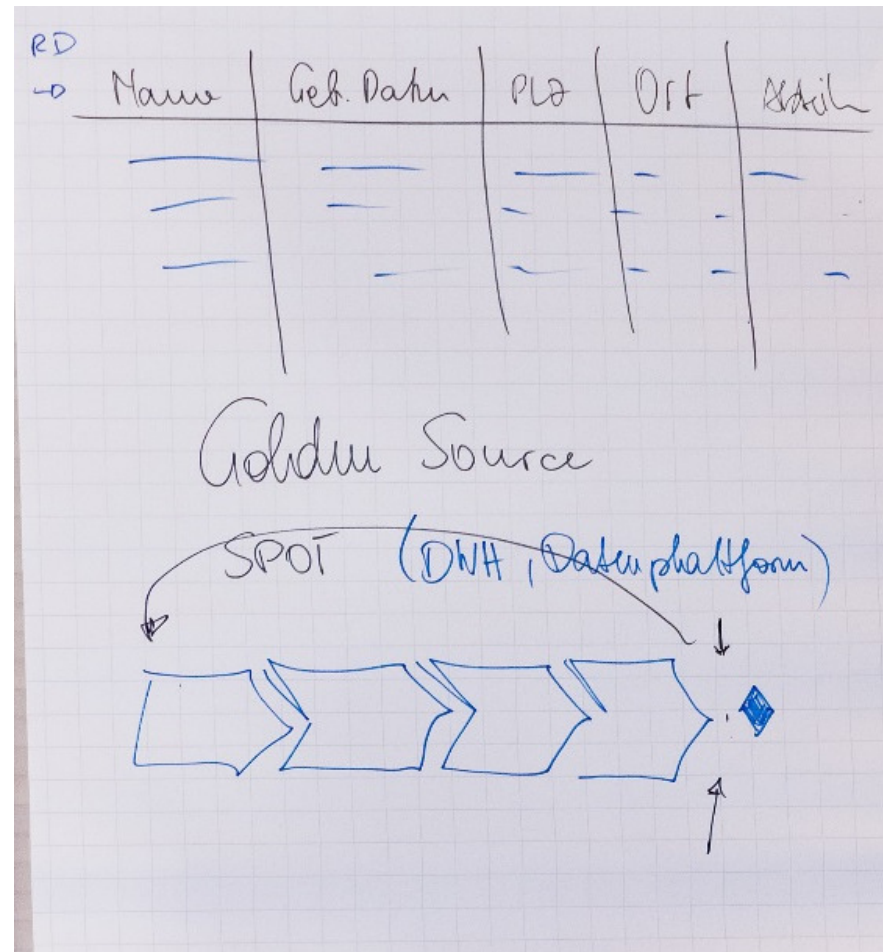 RD
Name Geb. Datum PLZ Ort
Golden Source
SPOT (DWH, Datenplattform)